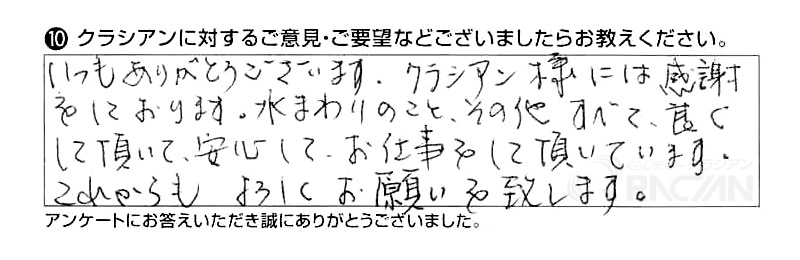 ⑩ クラシアンに対するご意見・ご要望などございましたらお教えください。
いつもありがとうございます。クラシアン様には感謝
をしております。水まわりのこと、その他すべて、良く
して頂いて、安心して、お仕事をして頂いています。
これからもよろしくお願いを致します。
アンケートにお答えいただき誠にありがとうございました。